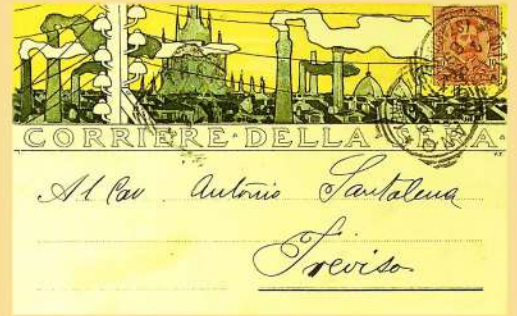 CORRIERE·DELLA·SERA·
Al Cav Antonio Santalena
Treviso